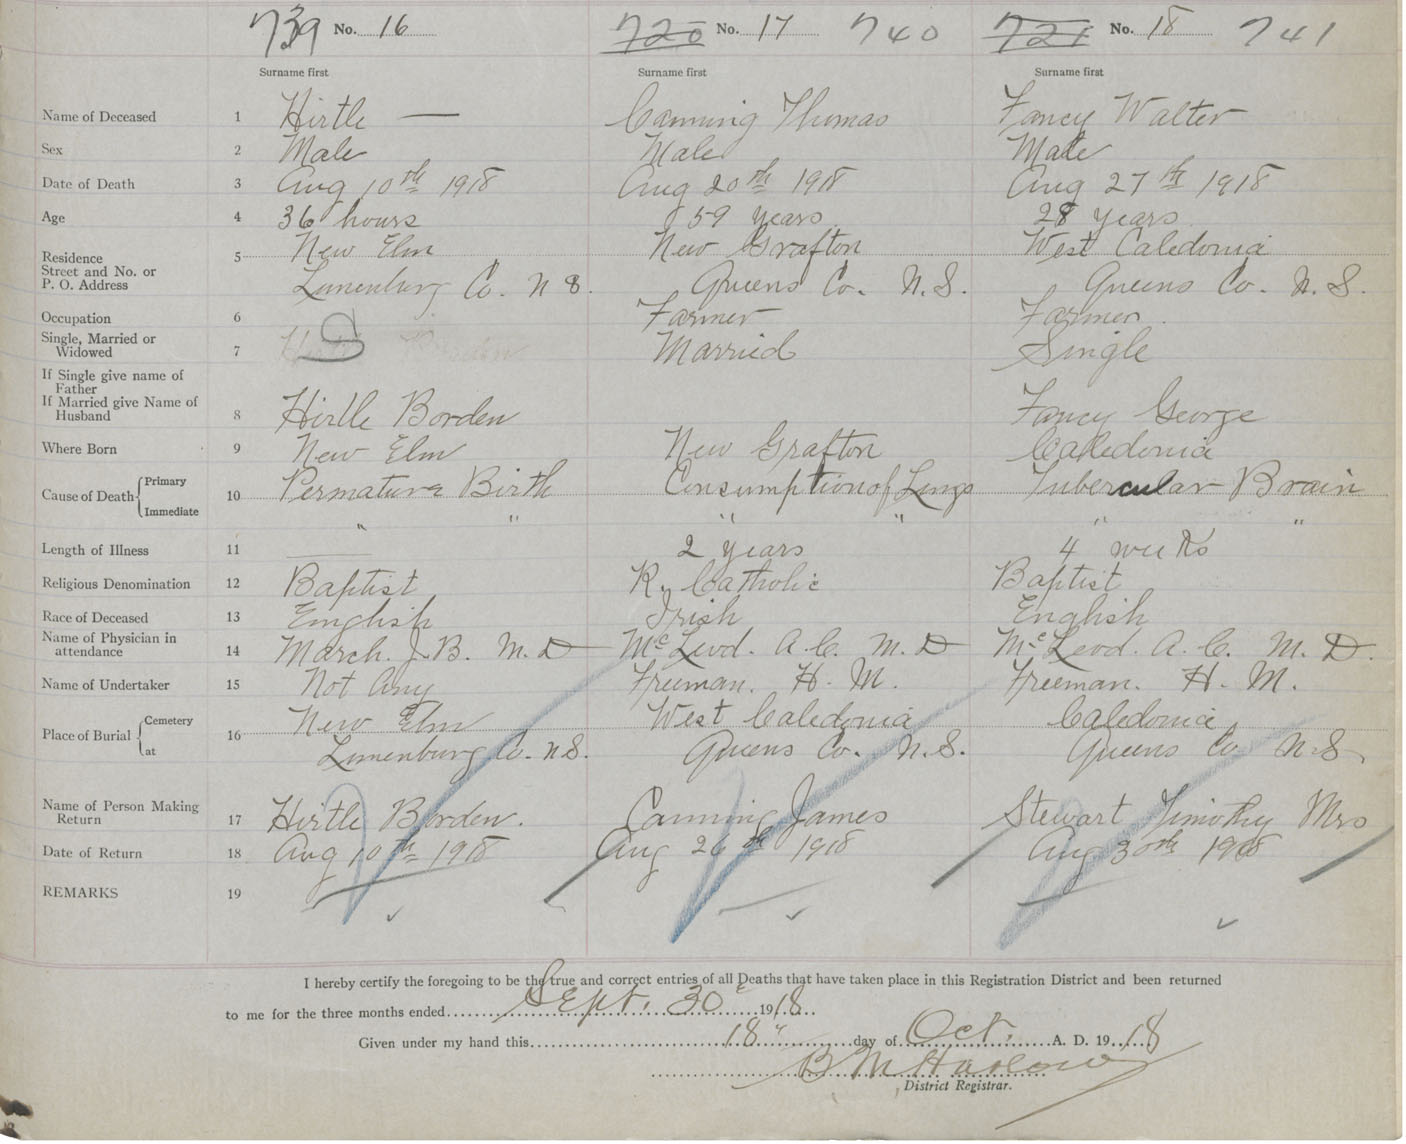 739 No. 16 720 No. 17 740 721 No. 18 741
Surname first Surname first Surname first
Name of Deceased 1 Hirtle — Canning Thomas Fancy Walter
Sex 2 Male Male Male
Date of Death 3 Aug 10th 1918 Aug 20th 1918 Aug 27th 1918
Age 4 36 hours 59 years 28 years
Residence 5 New Elm New Grafton West Caledonia
Street and No. or
P. O. Address Lunenburg Co. N S. Queens Co. N. S. Queens Co. N. S.
Occupation 6 Farmer Farmer
Single, Married or
Widowed 7 S Married Single
If Single give name of
Father
If Married give Name of
Husband 8 Hirtle Borden Fancy George
Where Born 9 New Elm New Grafton Caledonia
Cause of Death Primary 10 Permature Birth Consumption of Lungs Tubercular Brain
Immediate " " " " " "
Length of Illness 11 — 2 years 4 weeks
Religious Denomination 12 Baptist R. Catholic Baptist
Race of Deceased 13 English Irish English
Name of Physician in
attendance 14 March. J. B. M. D McLeod. A. C. M. D McLeod. A. C. M. D.
Name of Undertaker 15 Not Any Freeman. H. M. Freeman. H. M.
Place of Burial Cemetery 16 New Elm West Caledonia Caledonia
at Lunenburg Co. N S. Queens Co. N. S. Queens Co N. S.
Name of Person Making
Return 17 Hirtle Borden. Canning James Stewart Timothy Mrs
Date of Return 18 Aug 10th 1918 Aug 26th 1918 Aug 30th 1918
REMARKS 19
I hereby certify the foregoing to be the true and correct entries of all Deaths that have taken place in this Registration District and been returned
to me for the three months ended Sept. 30 1918
Given under my hand this 18" day of Oct. A. D. 1918
B M Harlow
District Registrar.